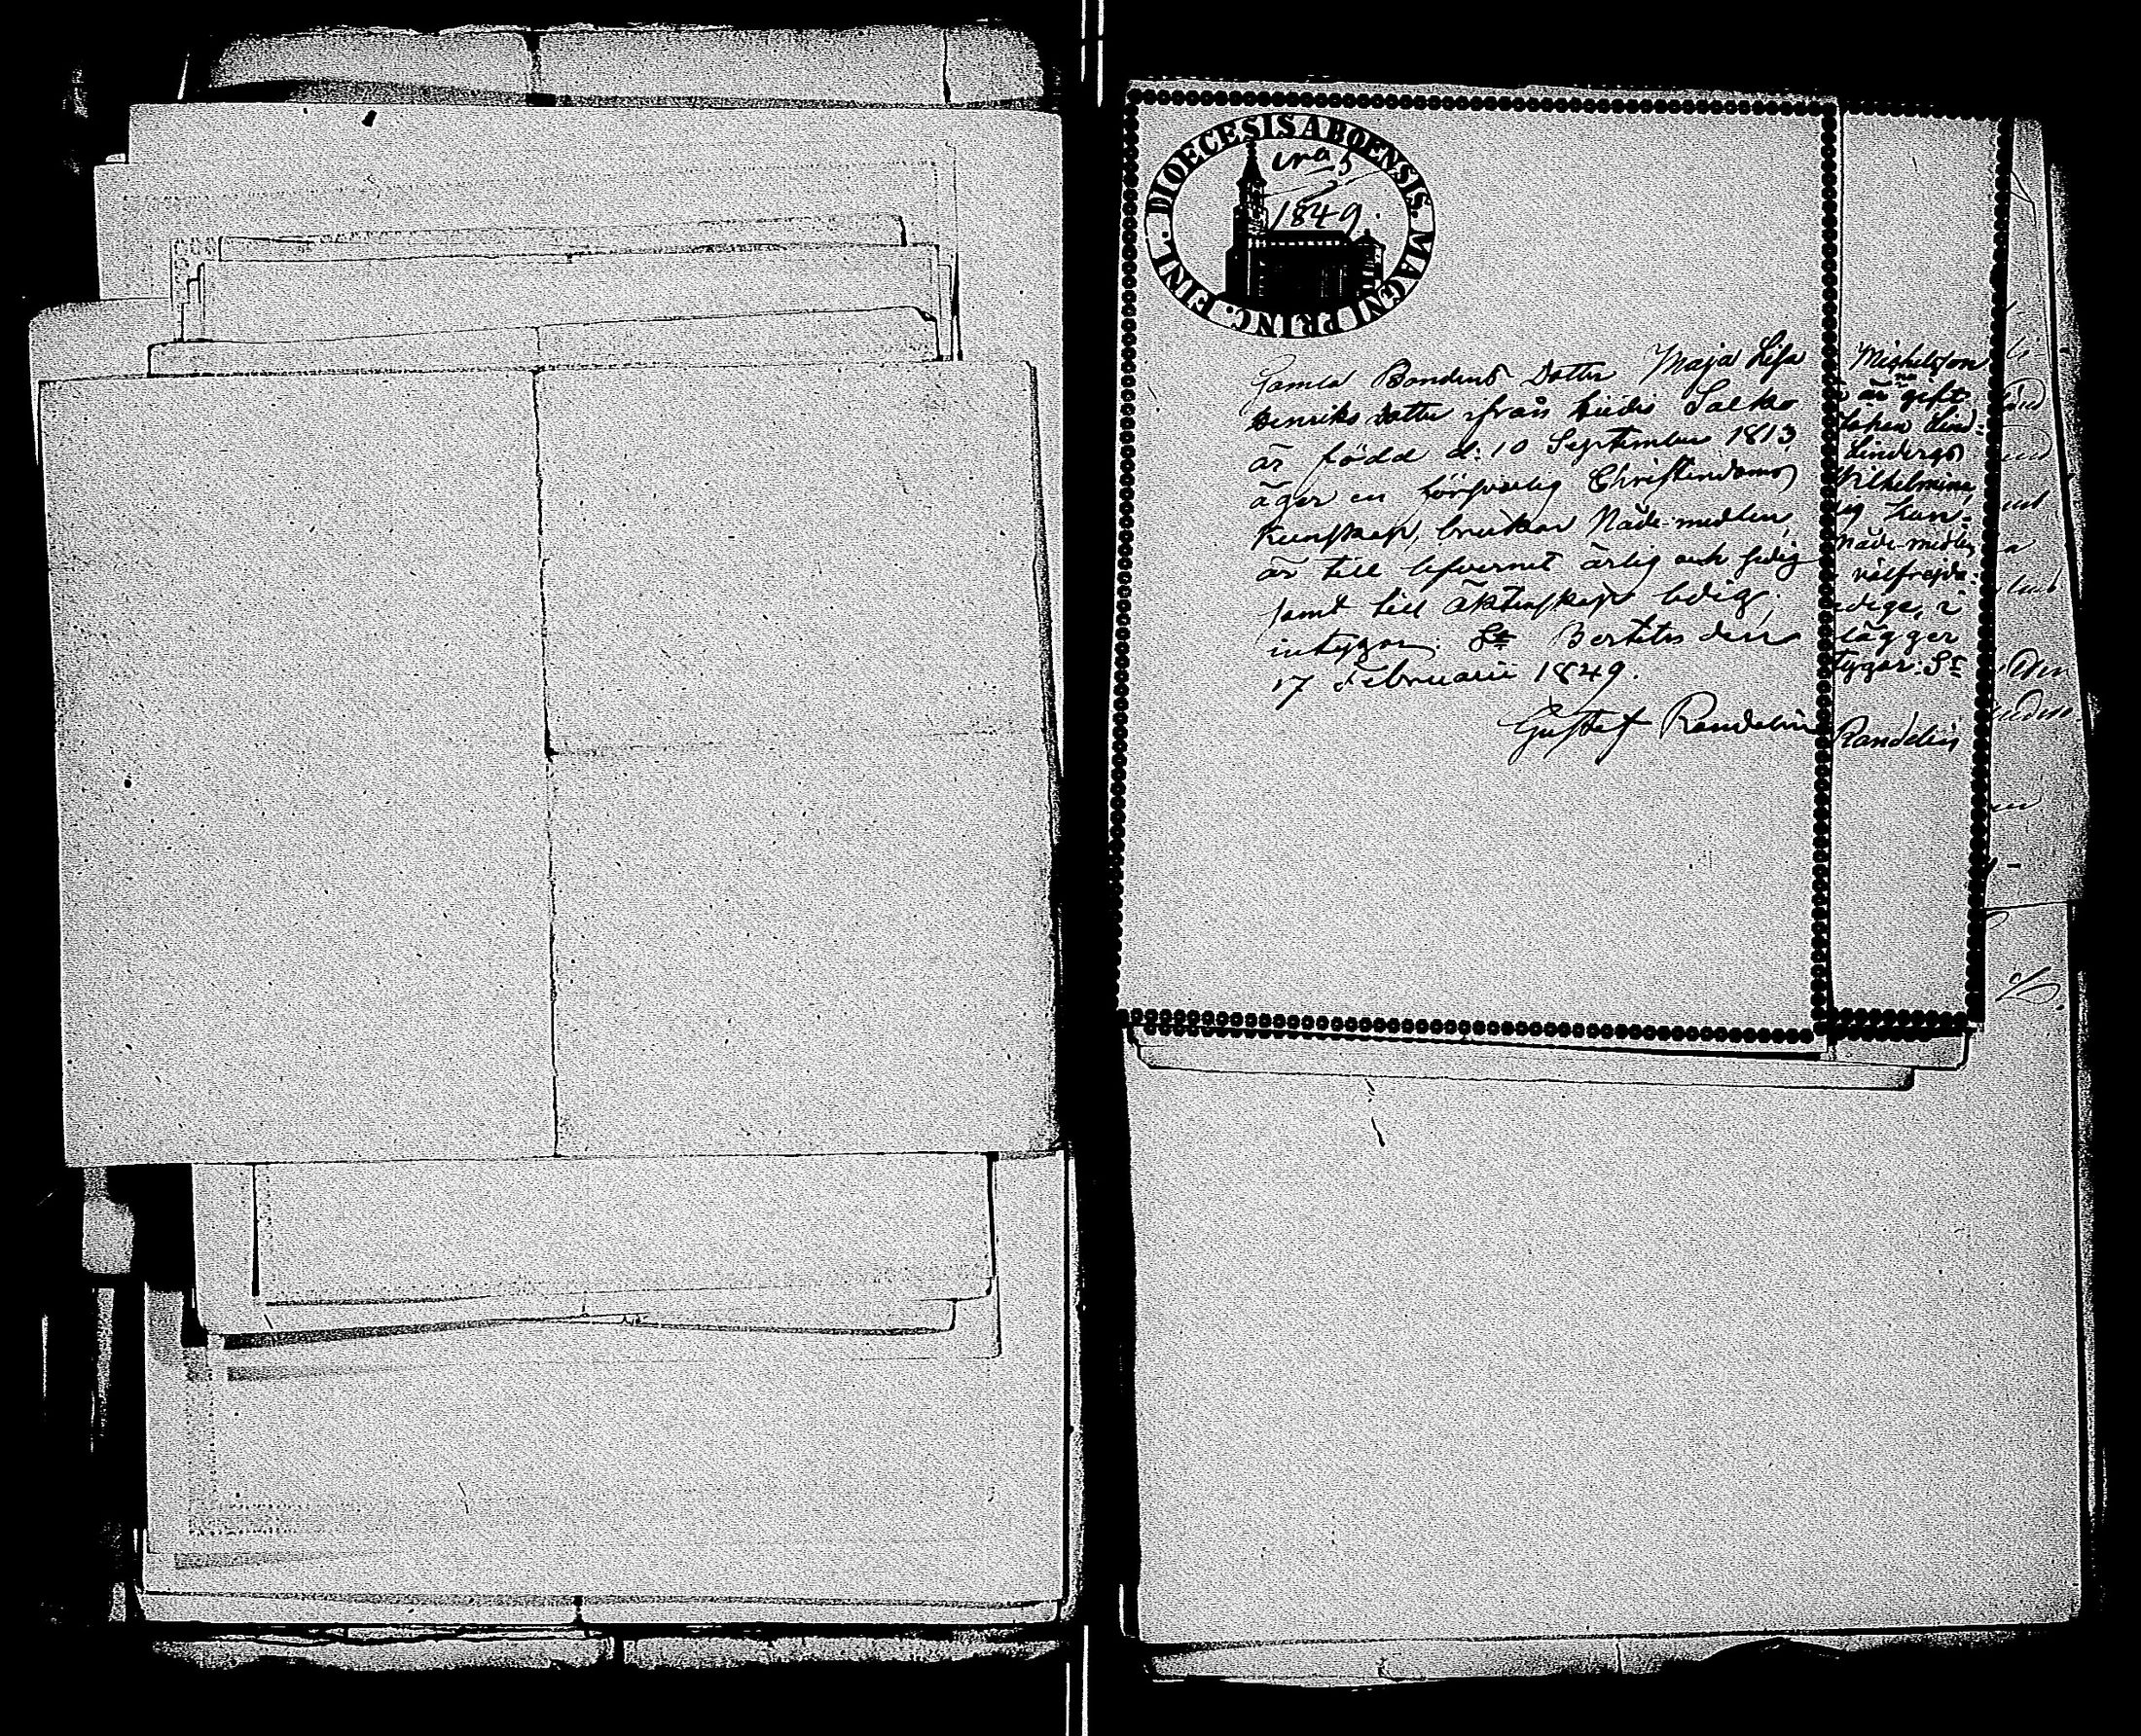 DIOECESIS ABOENSIS. MAGNI PRINC. FINL.
No 5
1849.
Gamla Bondens Dotter Maja Lisa
Henriks dotter ifrån Salko
är född d: 10 September 1813
äger en försvarlig Christendoms
kunskap, brukar Nåde-medlen,
är till lefvernet ärlig och sedig
samt till äktenskap ledig;
intygar. St Bertils den
17 Februarii 1849.
Gustaf Randelin
Michelsson
är gift
Johan
Lindergs
Wilhelmina,
kun-
Nåde-medlen
välfrejda
lägger
tygar. St
Randelin